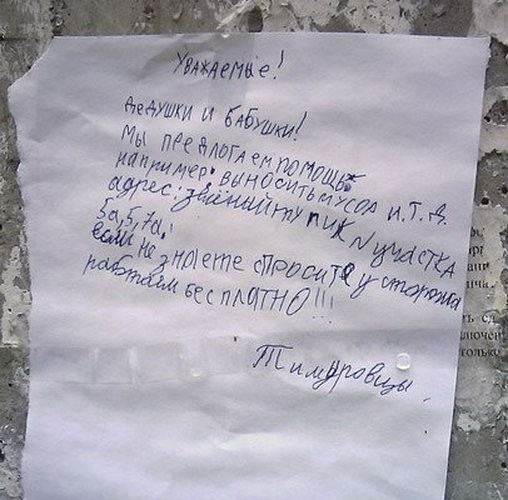 Уважаемые!
дедушки и бабушки!
Мы предлогаем помощь
например: выносить мусор и.т.д.
адрес: зелёный тупик N участка
5а, 5, 7а,
если не знаете спросите у сторожа
работаем бесплатно!!!
Тимуровцы.
ани
ича.
ть сл
ключен
только